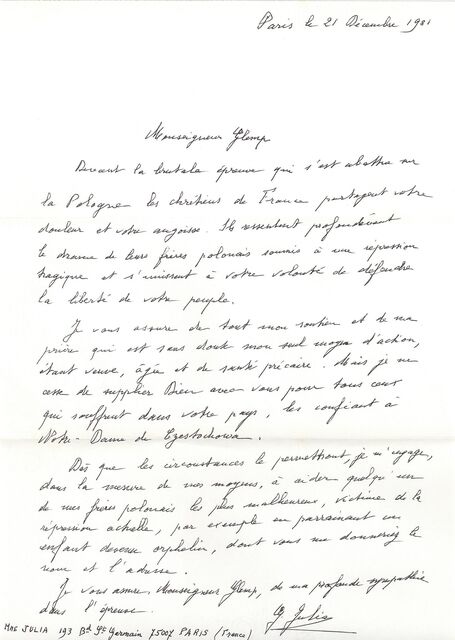 Paris le 21 Décembre 1981
Monseigneur Glemp
Devant la brutale épreuve qui s'est abattue sur
la Pologne les chrétiens de France partagent votre
douleur et votre angoisse. Ils ressentent profondément
le drame de leurs frères polonais soumis à une répression
tragique et s'unissent à votre volonté de défendre
la liberté de votre peuple.
Je vous assure de tout mon soutien et de ma
prière qui est sans doute mon seul moyen d'action,
étant veuve, âgée et de santé précaire. Mais je ne
cesse de supplier Dieu avec vous pour tous ceux
qui souffrent dans votre pays, les confiant à
Notre-Dame de Czestochowa.
Dès que les circonstances le permettront, je m'engage,
dans la mesure de mes moyens, à aider quelqu'un
de mes frères polonais les plus malheureux, victime de la
répression actuelle, par exemple en parrainant un
enfant devenu orphelin, dont vous me donneriez le
nom et l'adresse.
Je vous assure, Monseigneur Glemp, de ma profonde sympathie
dans l'épreuve.
G Julia
MME JULIA 193 Bd St Germain 75007 PARIS (France)